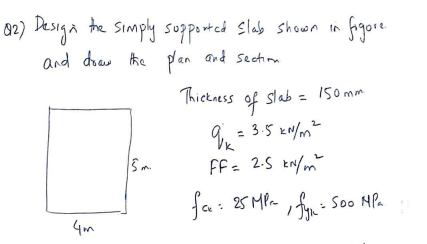 Q2) Design the simply supported slab shown in figure
and draw the plan and section
Thickness of slab = 150 mm
qk = 3.5 kN/m²
5 m.
FF = 2.5 kN/m²
fck = 25 MPa, fyk = 500 MPa
4m